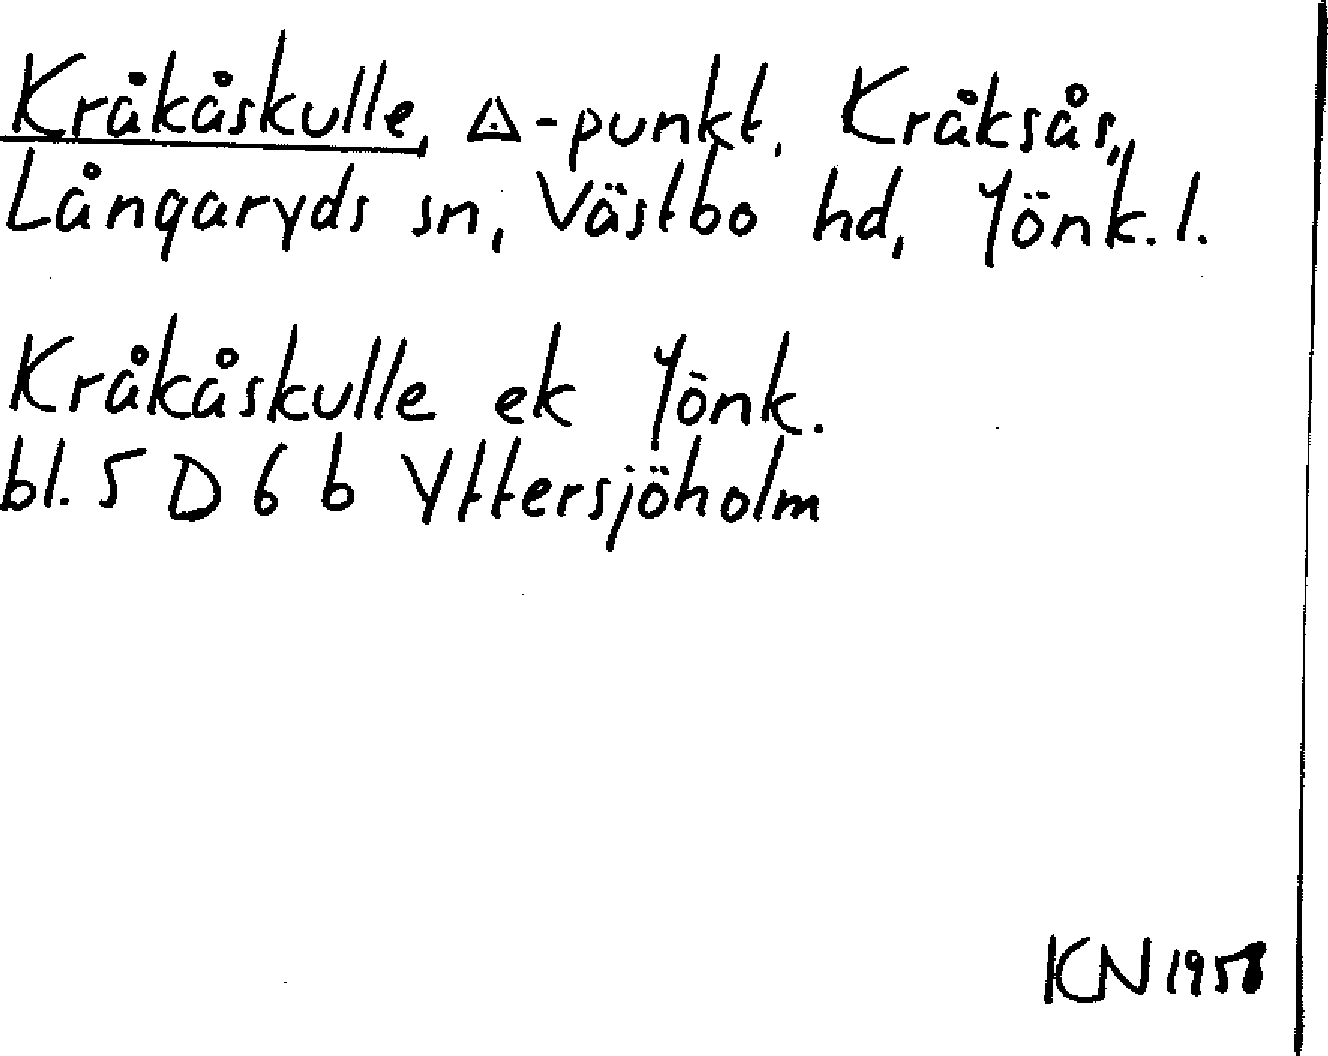 Kråkåskulle, △-punkt, Kråksås,
Långaryds sn, Västbo hd, Jönk. l.
Kråkåskulle ek Jönk.
bl. 5 D 6 b Yttersjöholm
KN 1958